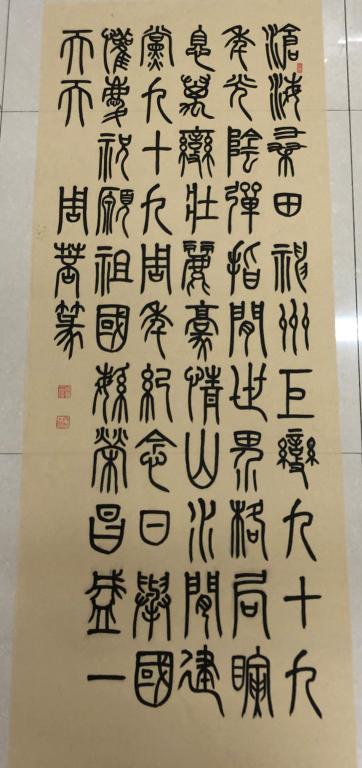 滄海桑田神州巨變九十九
年光陰彈指間世界格局瞬
息萬變壯麗豪情山水間建
黨九十九周年紀念日舉國
懽慶祝願祖國繁榮昌盛一
天天 周篆